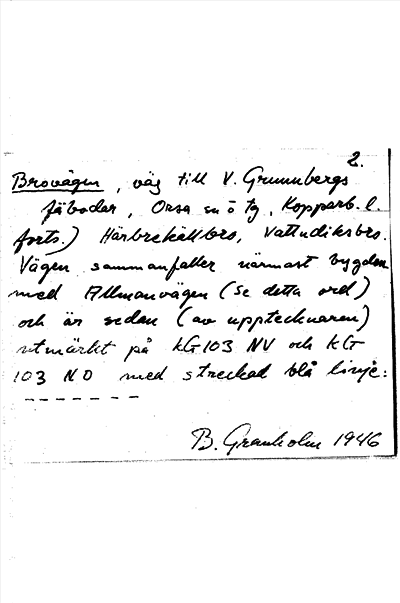 2.
Brovägen, väg till V. Grunubergs
fäbodar, Orsa sn ö tg, Kopparb. l.
forts.) Härbrekällbro, Vattudiksbro.
Vägen sammanfaller närmast bygden
med Allmanvägen (se detta ord)
och är sedan (av upptecknaren)
utmärkt på KG103 NV och KG
103 NO med streckad blå linje:
- - - - - - -
B. Granholm 1946